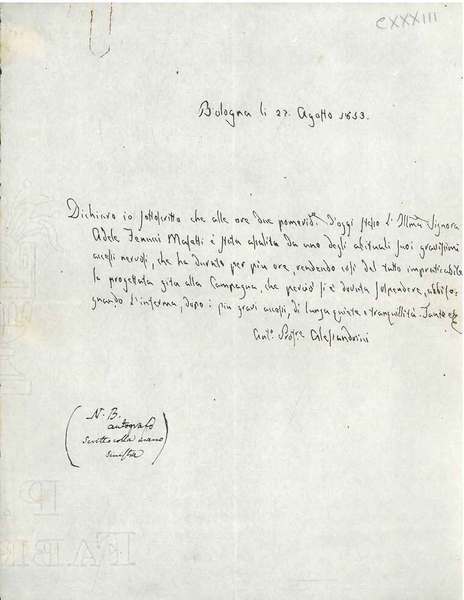 CXXXIII
Bologna li 27. Agosto 1853.
Dichiaro io sottoscritto che alle ore due pomerid.e d'oggi stesso l'Illma Signora
Adele Masetti è stata assalita da uno degli abituali suoi gravissimi
accessi nervosi, che ha durato per più ore, rendendo così del tutto impraticabile
la progettata gita alla Campagna, che perciò si è dovuta sospendere, abbiso-
gnando l'inferma, dopo i più gravi accessi, di lunga quiete e tranquillità.
Ant.o Alessandrini
N. B.
autografo
scritto colla mano
sinistra
FABR